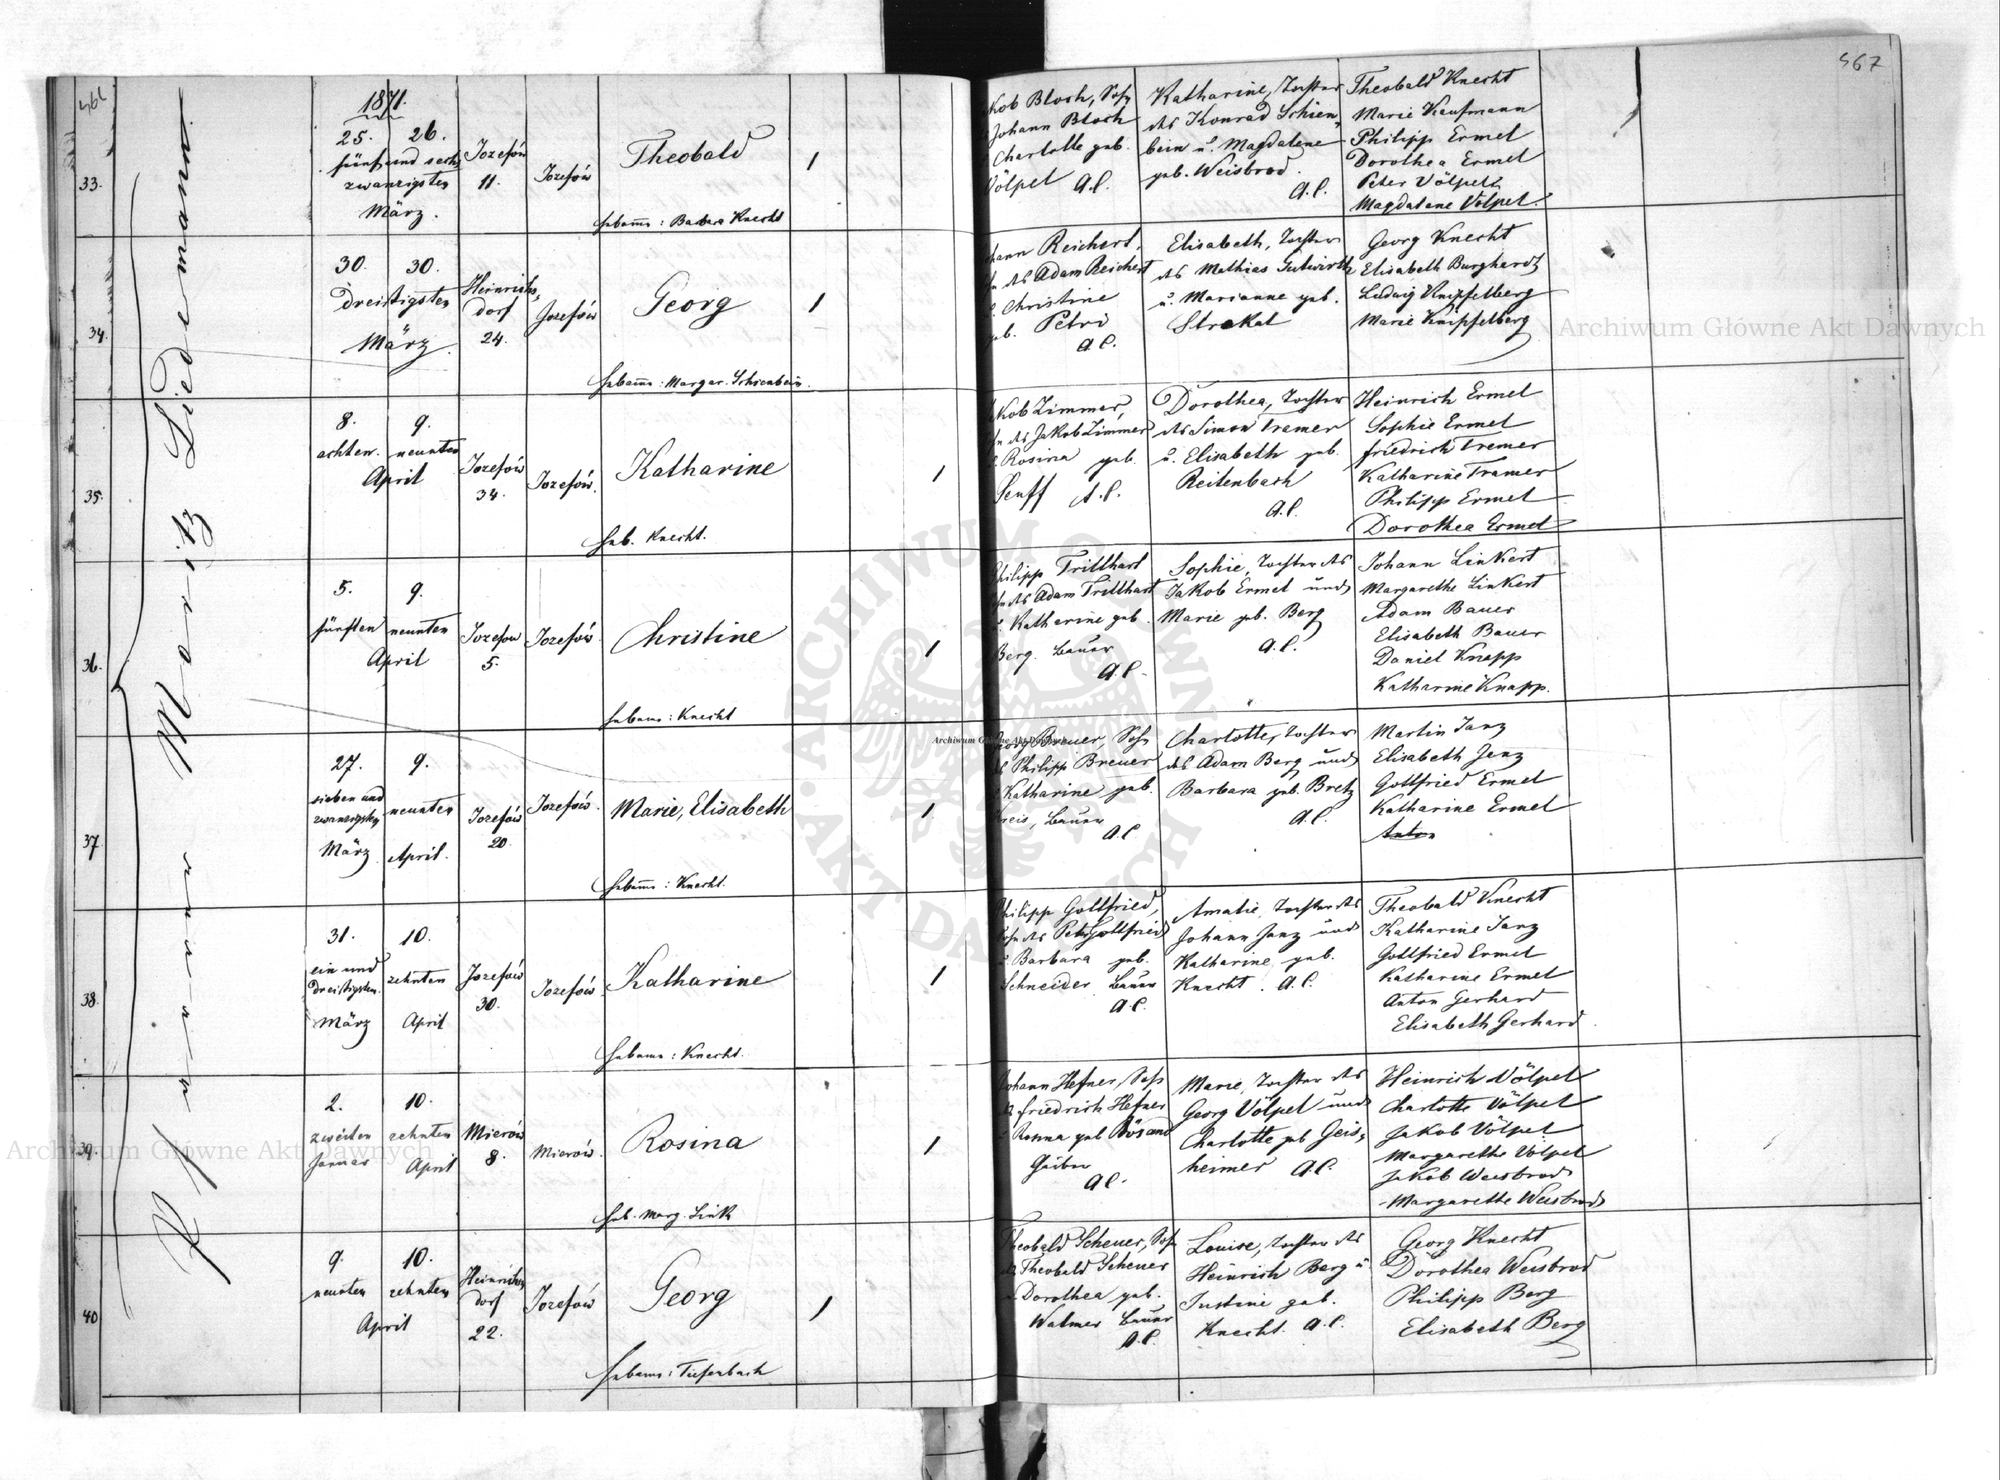 567
1871.
Pfarrer Moritz Liedemann
33.
25. 26.
fünf und sechs
zwanzigsten
März.
Jozefów
11.
Jozefów
Theobald
1
Hebamme: Barbara Knecht
Jakob Bloch, Sohn
Johann Bloch
Charlotte geb.
Völpel A.C.
Katharine, Tochter
des Konrad Schien-
bein u. Magdalene
geb. Weisbrod.
A.C.
Theobald Knecht
Marie Kaufmann
Philipp Ermel
Dorothea Ermel
Peter Völpel
Magdalene Völpel.
34.
30. 30.
dreissigsten
März.
Heinrichs-
dorf
24.
Jozefów
Georg
1
Hebamme: Margar. Schienbein.
Johann Reichert,
Sohn des Adam Reichert
u. Christine
geb. Petri
A.C.
Elisabeth, Tochter
des Mathias Gutwirth
u. Marianne geb.
Strokal
Georg Knecht
Elisabeth Burghardt
Ludwig Knipfelberg
Marie Knipfelberg
35.
8. 9.
achten. neunten
April
Jozefów
34.
Jozefów.
Katharine
1
Heb. Knecht.
Jakob Zimmer,
Sohn des Jakob Zimmer
u. Rosina geb.
Senff A.C.
Dorothea, Tochter
des Simon Tramer
u. Elisabeth geb.
Reitenbach
A.C.
Heinrich Ermel
Sophie Ermel
Friedrich Tremer
Katharine Tramer
Philipp Ermel
Dorothea Ermel
36.
5. 9.
fünften neunten
April
Jozefow
5.
Jozefów.
Christine
1
Hebame: Knecht
Philipp Trillhart
Sohn des Adam Trillhart
u. Katharine geb.
Berg. Bauer
A.C.
Sophie, Tochter des
Jakob Ermel und
Marie geb. Berg
A.C.
Johann Linkert
Margarethe Linkert
Adam Bauer
Elisabeth Bauer
Daniel Knapp
Katharine Knapp.
37.
27. 9.
sieben und
zwanzigsten neunten
März April.
Jozefów
20.
Jozefów.
Marie, Elisabeth
1
Hebamme: Knecht.
Georg Breuer, Sohn
des Philipp Breuer
u. Katharine geb.
Kreis, Bauer
A.C.
Charlotte, Tochter
des Adam Berg und
Barbara geb. Bretz
A.C.
Martin Janz
Elisabeth Janz
Gottfried Ermel
Katharine Ermel
Anton
38.
31. 10.
ein und
dreissigsten. zehnten
März April
Jozefów
30.
Jozefów.
Katharine
1
Hebame: Knecht.
Philipp Gottfried,
Sohn des Peter Gottfried
u. Barbara geb.
Schneider Bauer
A.C.
Amalie, Tochter des
Johann Janz und
Katharine geb.
Knecht. A.C.
Theobald Knecht
Katharine Janz
Gottfried Ermel
Katharine Ermel
Anton Gerhard
Elisabeth Gerhard.
39.
2. 10.
zweiten zehnten
Januar April
Mierów
8.
Mierów.
Rosina
1
Heb. Marg. Link
Johann Hefner, Sohn
des Friedrich Hefner
u. Rosina geb
A.C.
Marie, Tochter des
Georg Völpel und
Charlotte geb Geis-
heimer A.C.
Heinrich Völpel
Charlotte Völpel
Jakob Völpel
Margarethe Völpel
Jakob Weisbrod
Margarethe Weisbrod
40
9. 10.
neunten zehnten
April
Heinrichs-
dorf
22.
Jozefów
Georg
1
Hebame: Tiefenbach
Theobald Scheuer, Sohn
des Theobald Scheuer
u. Dorothea geb.
Walmer Bauer
A.C.
Louise, Tochter des
Heinrich Berg u.
Justine geb.
Knecht. A.C.
Georg Knecht
Dorothea Weisbrod
Philipp Berg
Elisabeth Berg
Archiwum Główne Akt Dawnych
Archiwum Główne Akt Dawnych
Archiwum Główne Akt Dawnych
ARCHIWUM GŁÓWNE AKT DAWNYCH